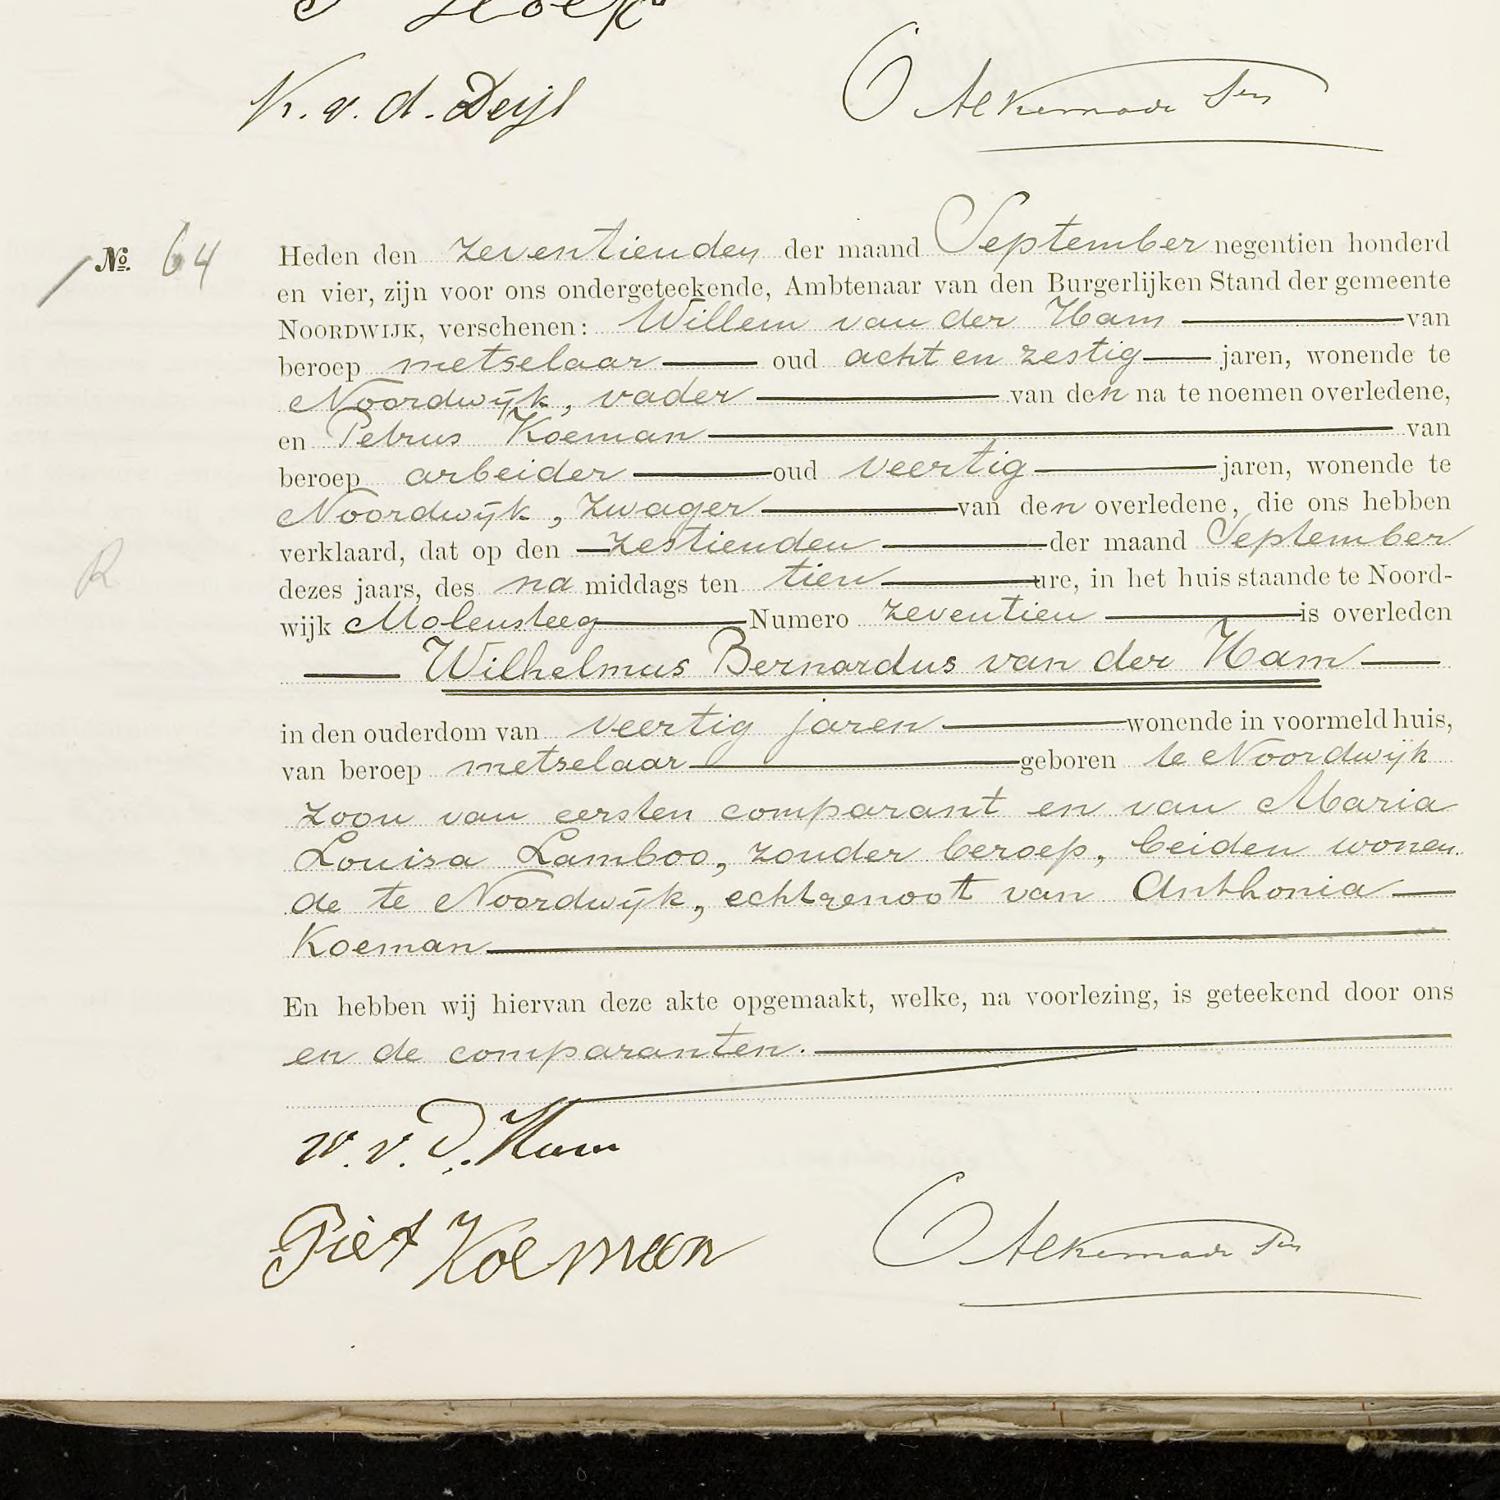 Hoek
K. v. d. Deijl
C Alkemade Szn
No. 64
Heden den zeventienden der maand September negentien honderd
en vier, zijn voor ons ondergeteekende, Ambtenaar van den Burgerlijken Stand der gemeente
NOORDWIJK, verschenen: Willem van der Ham van
beroep metselaar oud acht en zestig jaren, wonende te
Noordwijk, vader van den na te noemen overledene,
en Petrus Koeman van
beroep arbeider oud veertig jaren, wonende te
Noordwijk, zwager van den overledene, die ons hebben
verklaard, dat op den zestienden der maand September
dezes jaars, des na middags ten tien ure, in het huis staande te Noord-
wijk Molensteeg Numero zeventien is overleden
Wilhelmus Bernardus van der Ham
in den ouderdom van veertig jaren wonende in voormeld huis,
van beroep metselaar geboren te Noordwijk
zoon van eersten comparant en van Maria
Louisa Lamboo, zonder beroep, beiden wonen
de te Noordwijk, echtgenoot van Anthonia
Koeman
En hebben wij hiervan deze akte opgemaakt, welke, na voorlezing, is geteekend door ons
en de comparanten.
R
w. v. D. Ham
Piet Koeman
C Alkemade Szn